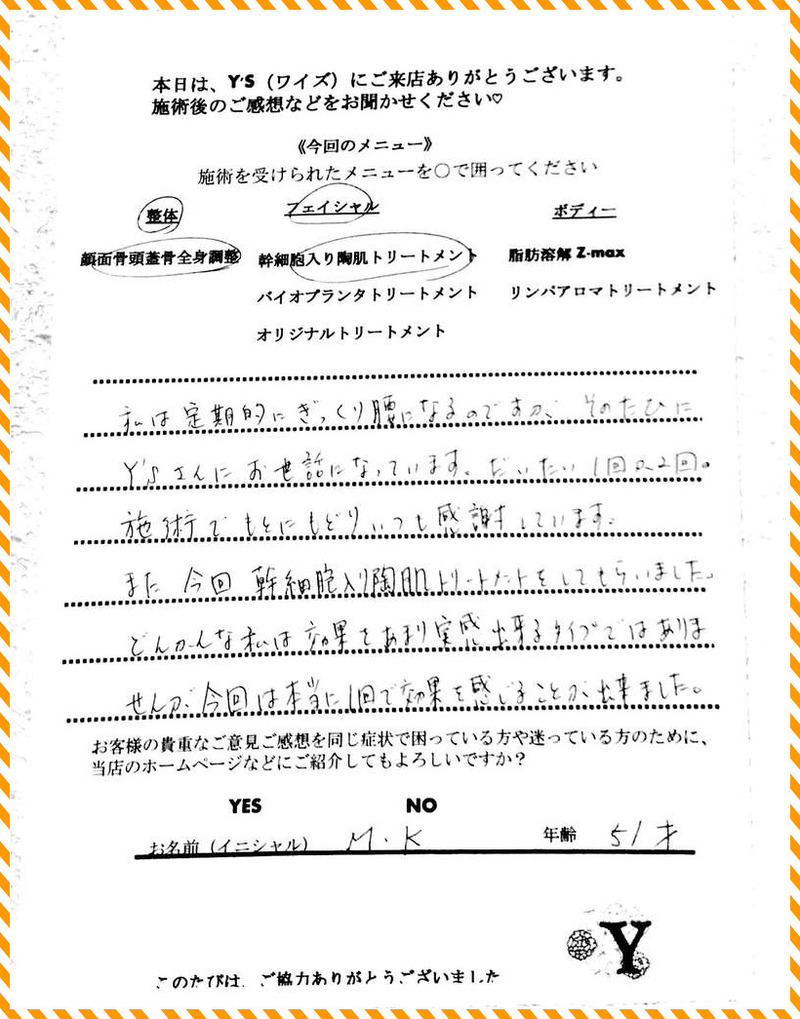 本日は、Y'S（ワイズ）にご来店ありがとうございます。
施術後のご感想などをお聞かせください♡
《今回のメニュー》
施術を受けられたメニューを〇で囲ってください
整体 フェイシャル ボディー
顔面骨頭蓋骨全身調整 幹細胞入り陶肌トリートメント 脂肪溶解 Z-max
バイオプランタトリートメント リンパアロマトリートメント
オリジナルトリートメント
私は定期的にぎっくり腰になるのですが、そのたびに
Y'Sさんにお世話になっています。だいたい1回か2回。
施術でもとにもどりいつも感謝しています。
また今回幹細胞入り陶肌トリートメントをしてもらいました。
どんかんな私は効果をあまり実感出来るタイプではありま
せんが、今回は本当に1回で効果を感じることが出来ました。
お客様の貴重なご意見ご感想を同じ症状で困っている方や迷っている方のために、
当店のホームページなどにご紹介してもよろしいですか？
YES NO
お名前（イニシャル） M.K 年齢 51才
Y
このたびは、ご協力ありがとうございました